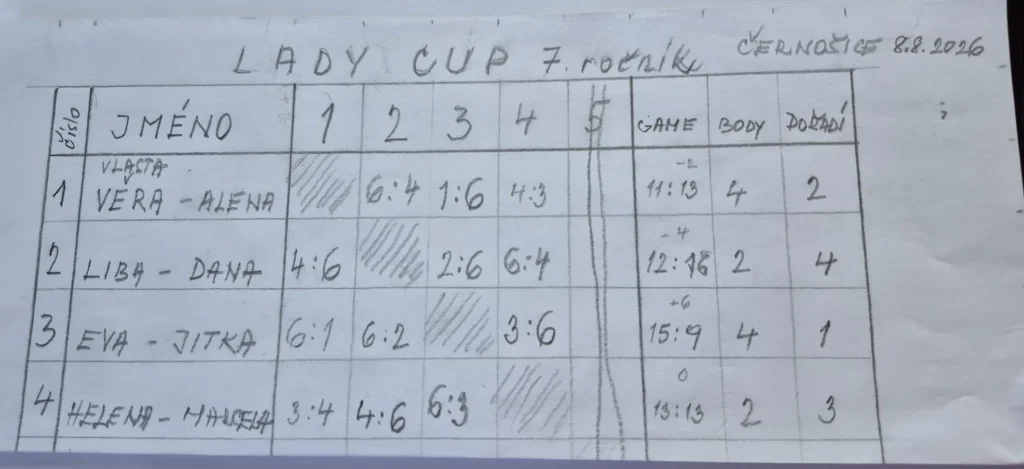 LADY CUP 7. ročník ČERNOŠICE 8.8.2026
číslo JMÉNO 1 2 3 4 5 GAME BODY POŘADÍ
VLASTA -2
1 VĚRA - ALENA 6:4 1:6 4:3 11:13 4 2
-4
2 LIBA - DANA 4:6 2:6 6:4 12:16 2 4
+6
3 EVA - JITKA 6:1 6:2 3:6 15:9 4 1
0
4 HELENA - MARCELA 3:4 4:6 6:3 13:13 2 3